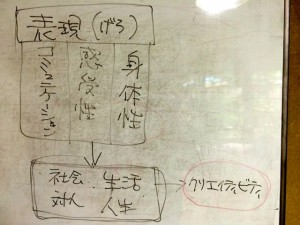 表現(げろ)
コミュニケーション
感受性
身体性
社会 生活
対人 人生
クリエイティビティ